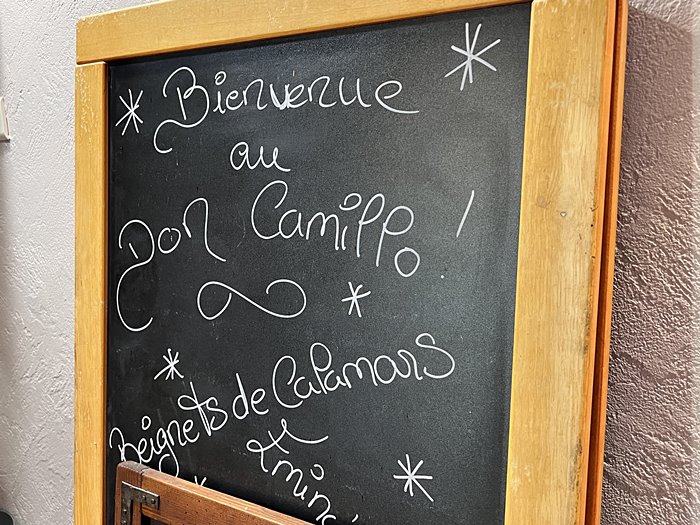 Bienvenue
au
Don Camillo !
Beignets de Calamars